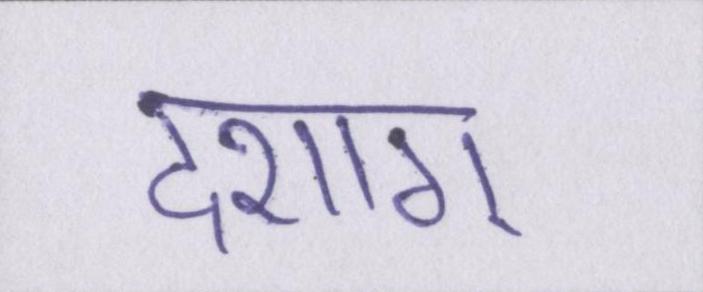 दशाग्